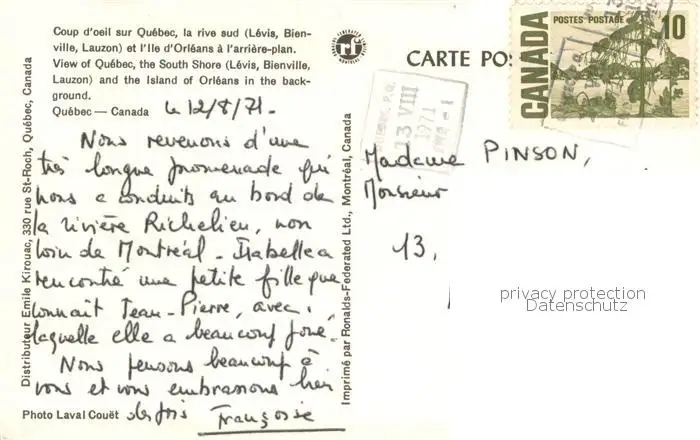 Coup d'oeil sur Québec, la rive sud (Lévis, Bien-
ville, Lauzon) et l'Ile d'Orléans à l'arrière-plan.
View of Québec, the South Shore (Lévis, Bienville,
Lauzon) and the Island of Orléans in the back-
ground.
Québec — Canada
le 12/8/71.
Nous revenons d'une
très longue promenade qui
nous a conduits au bord de
la rivière Richelieu, non
loin de Montréal - Isabelle a
rencontré une petite fille que
connait Jean-Pierre, avec
laquelle elle a beaucoup joué.
Nous pensons beaucoup à
vous et vous embrassons bien
des fois Françoise
Photo Laval Couët
Distributeur Emile Kirouac, 330 rue St-Roch, Québec, Canada
Imprimé par Ronalds-Federated Ltd., Montréal, Canada
CARTE POS
CANADA
POSTES POSTAGE
10
13 VIII
1971
Madame PINSON,
Monsieur
13,
privacy protection
Datenschutz